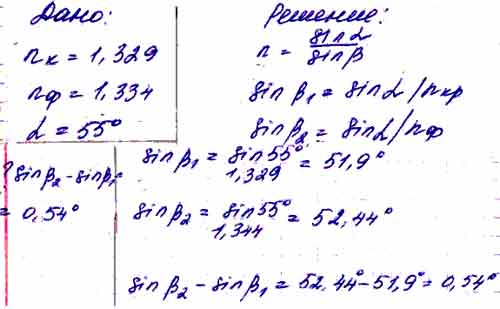 Дано:
nк = 1,329
nф = 1,334
α = 55°
? sinβ₂ - sinβ₁ =
= 0,54°
Решение:
n = sinα / sinβ
sin β₁ = sinα / nкр
sin β₂ = sinα / nф
sin β₁ = sin 55° / 1,329 = 51,9°
sin β₂ = sin 55° / 1,344 = 52,44°
sin β₂ - sin β₁ = 52,44° - 51,9° = 0,54°